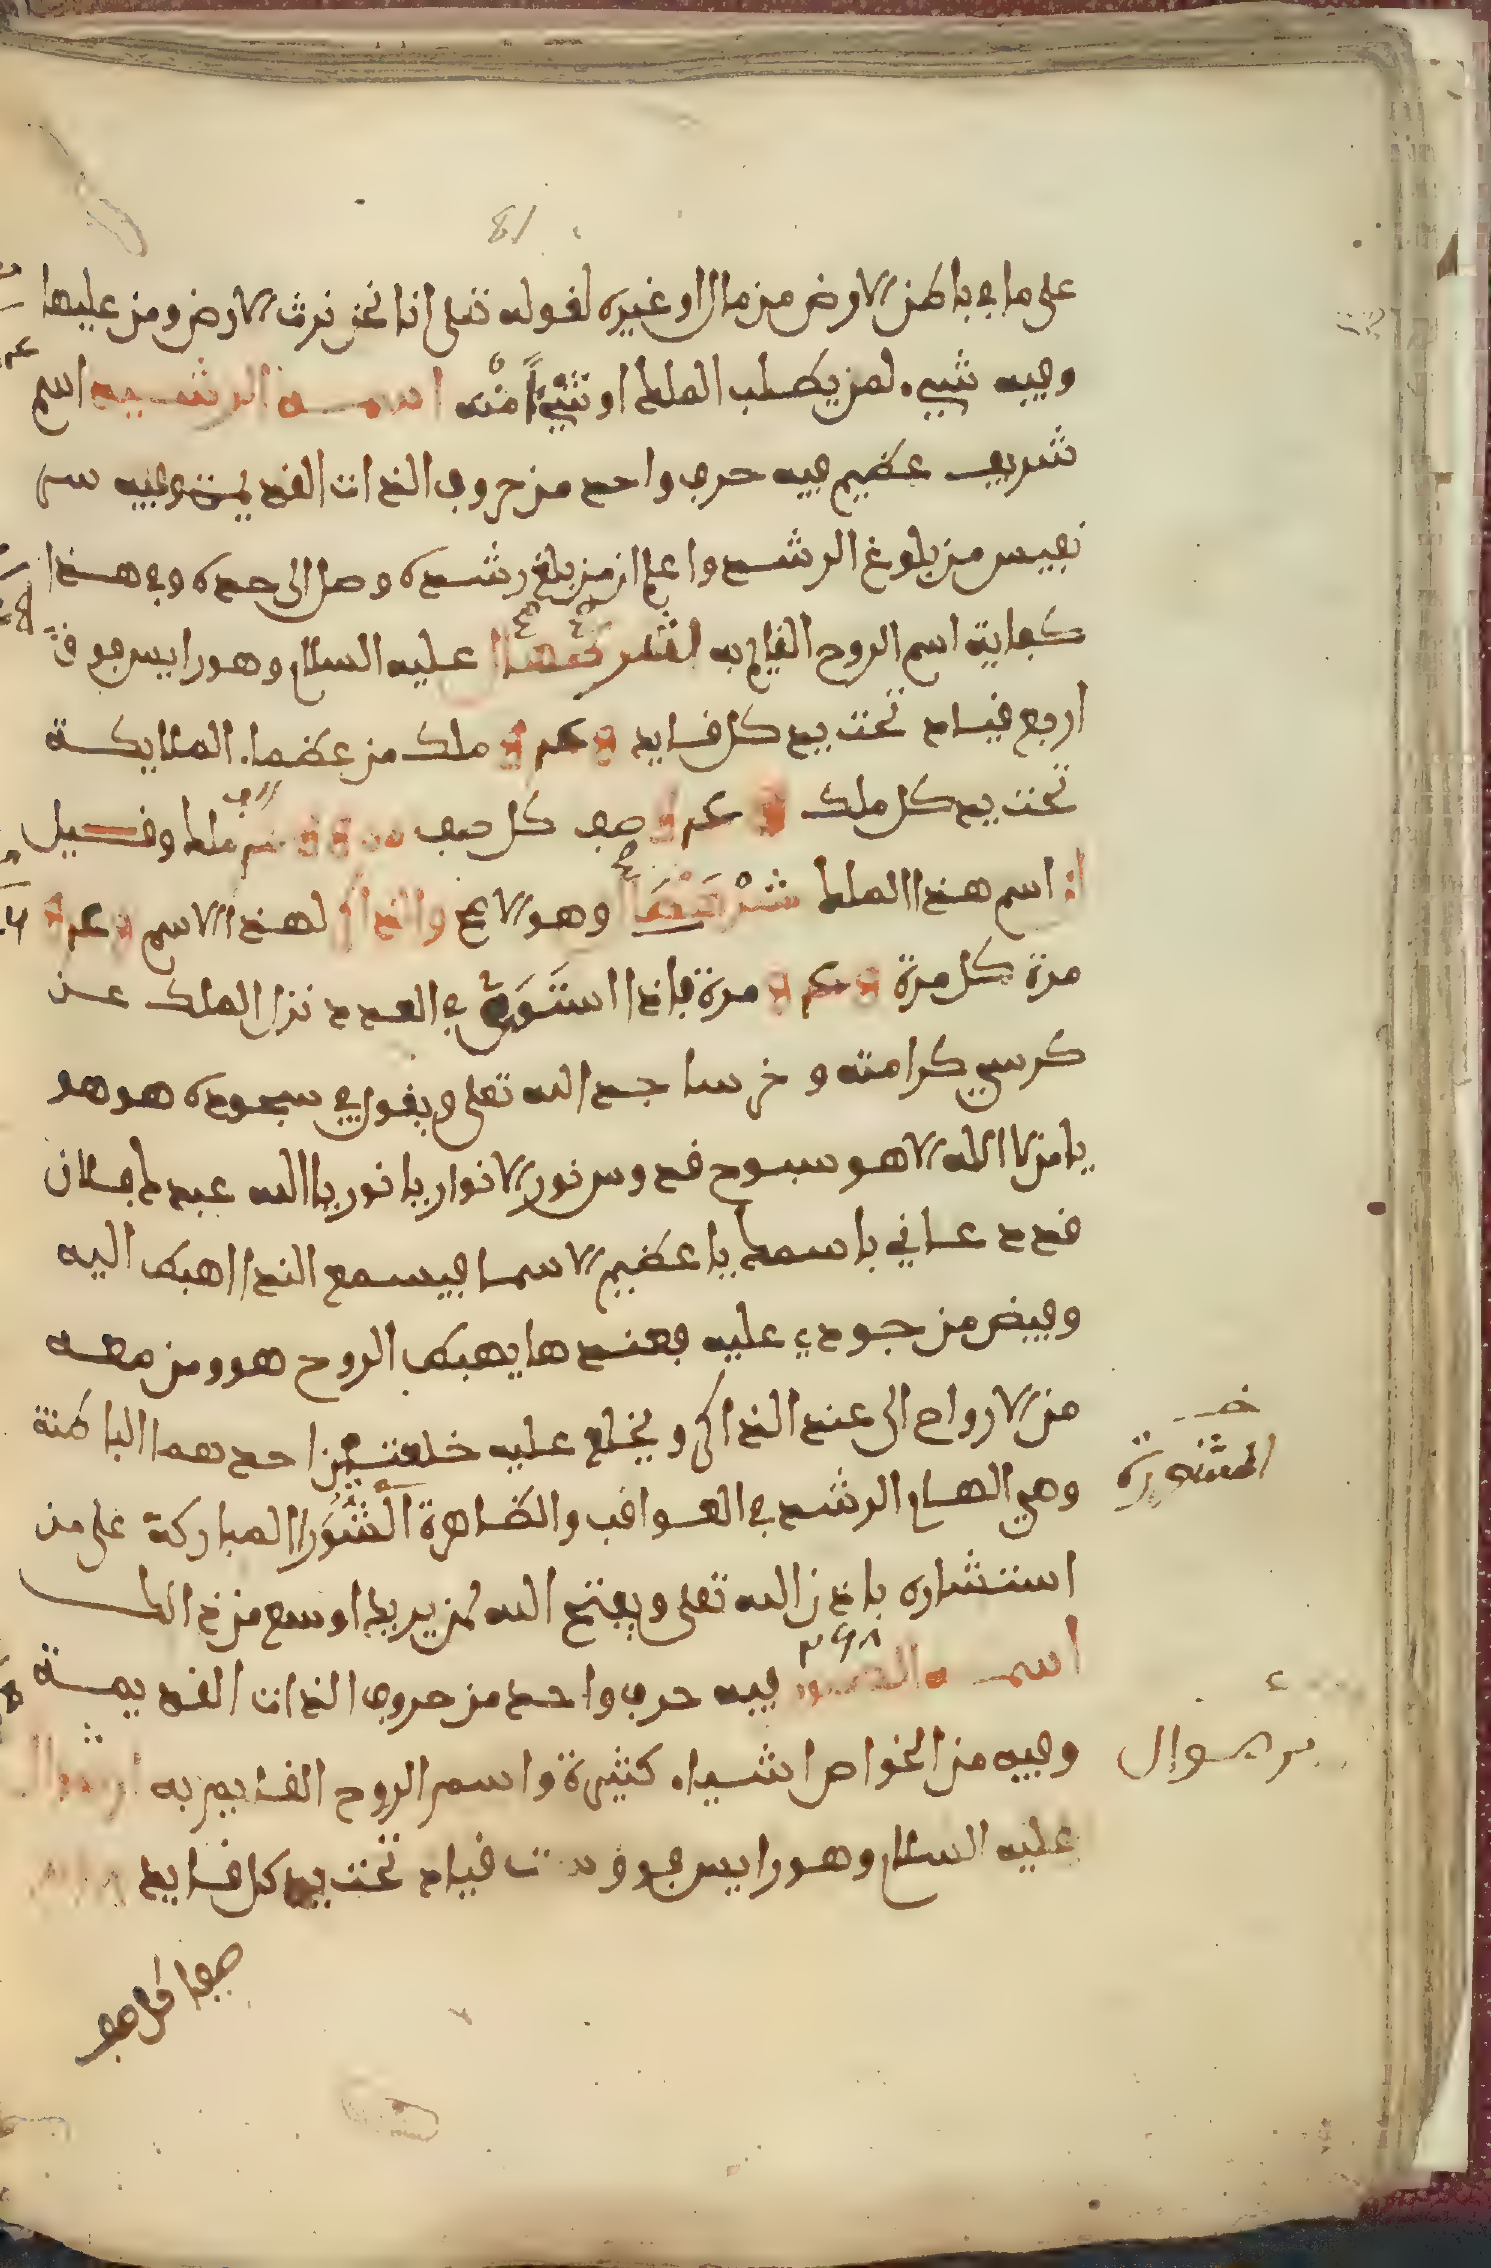 81
على ما في باطن الارض من مال او غيره لقوله تعلى انا نحن نرث الارض ومن عليها
وفيه شيء لمن يطلب الملك او شيئا منه اسمه الرشيد اسم
شريف عظيم فيه حرف واحد من حروف الذات القديمة وفيه سر
نفيس من بلوغ الرشد واعلم ان من بلغ رشده وصل الى حده وفي هذا
كفاية اسم الروح القايم به عليه السلام وهو رايس فوق
اربع قياد تحت يد كل قايد ملك من عظماء الملايكة
تحت يد كل ملك صف كل صف ملك وقيل
ان اسم هذا الملك وهو الاصح والذاكر لهذا الاسم
مرة كل مرة مرة فاذا استوفى في العدد نزل الملك عن
كرسي كرامته وخر ساجد الله تعلى ويقول في سجوده هو هو
يا من لا اله الا هو سبوح قدوس نور الانوار يا نور يا الله عبدك فلان
قد دعاني باسمك يا عظيم الاسما فيسمع الندا اهبط اليه
وفيض من جودي عليه فعندها يهبط الروح هو ومن معه
من الارواح الى عند الذاكر ويخلع عليه خلعتين احدهما الباطنة
وهي الهام الرشد في العواقب والظاهرة الشورا المباركة على من
استشاره باذن الله تعلى ويفتح الله لمن يريد اوسع من ذالك
اسمه فيه حرف واحد من حروف الذات القديمة
وفيه من الخواص اشياء كثيرة واسم الروح القايم به
عليه السلام وهو رايس فوق ست قياد تحت يد كل قايد
صفا كل صف
المشورة